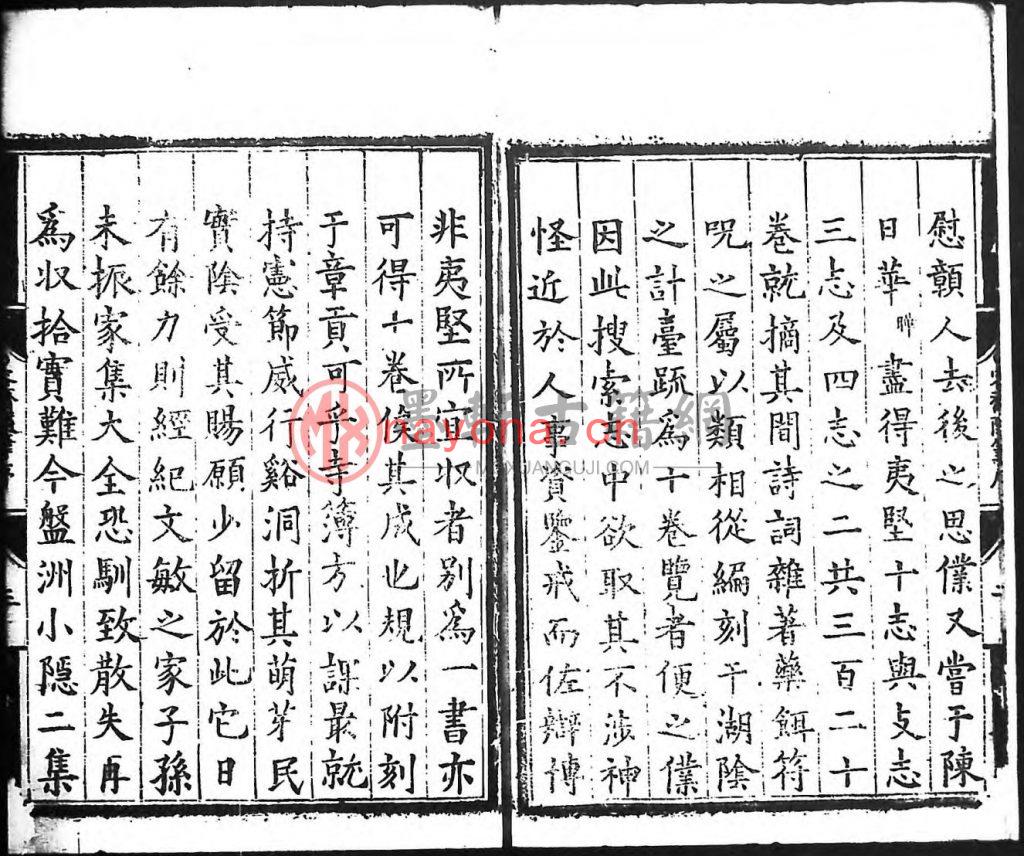 慰顙人去後之思僕又嘗于陳
日華曄盡得夷堅十志與支志
三志及四志之二共三百二十
卷就摘其間詩詞雜著藥餌符
呪之屬以類相從編刻于湖陰
之計臺䟽為十卷覽者便之僕
因此搜索志中欲取其不涉神
怪近於人事資鑒戒而佐辯博
非夷堅所宜収者别為一書亦
可得十卷俟其成也規以附刻
于章貢可乎寺簿方以課最就
持憲節威行谿洞折其萌芽民
實陰受其賜願少留於此它日
有餘力則經紀文敏之家子孫
未振家集大全恐馴致散失再
爲収拾實難今盤洲小隠二集
墨軒古籍網
nayona.cn
MOXUANGUJI.COM